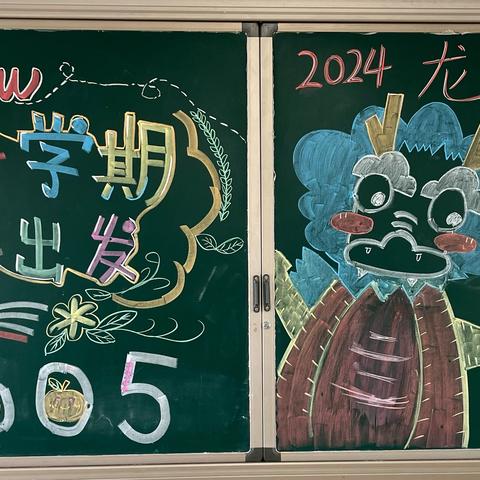 w
学期
出发
605
2024 龙